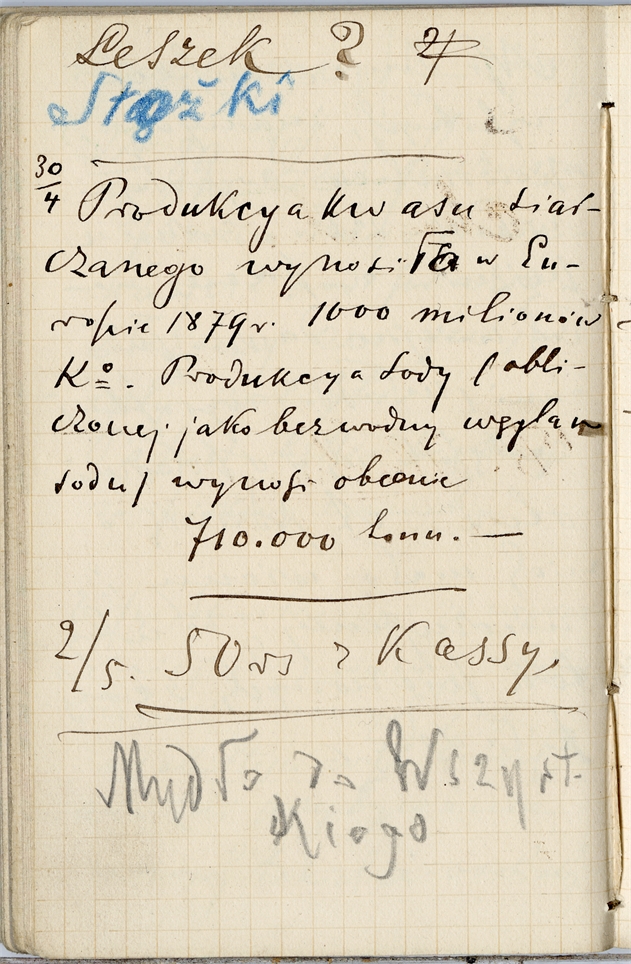 Leszek ? 2/
Stążki
30/4 Produkcya kwasu siar-
czanego wynosiła w Eu-
ropie 1879 r. 1000 milionów
Ko. Produkcya sody (obli-
czonej jako bezwodny węglan
sodu) wynosi obecnie
710.000 tonn. —
2/5. 50 rs z Kassy.
Mydło do Wszyst-
kiego